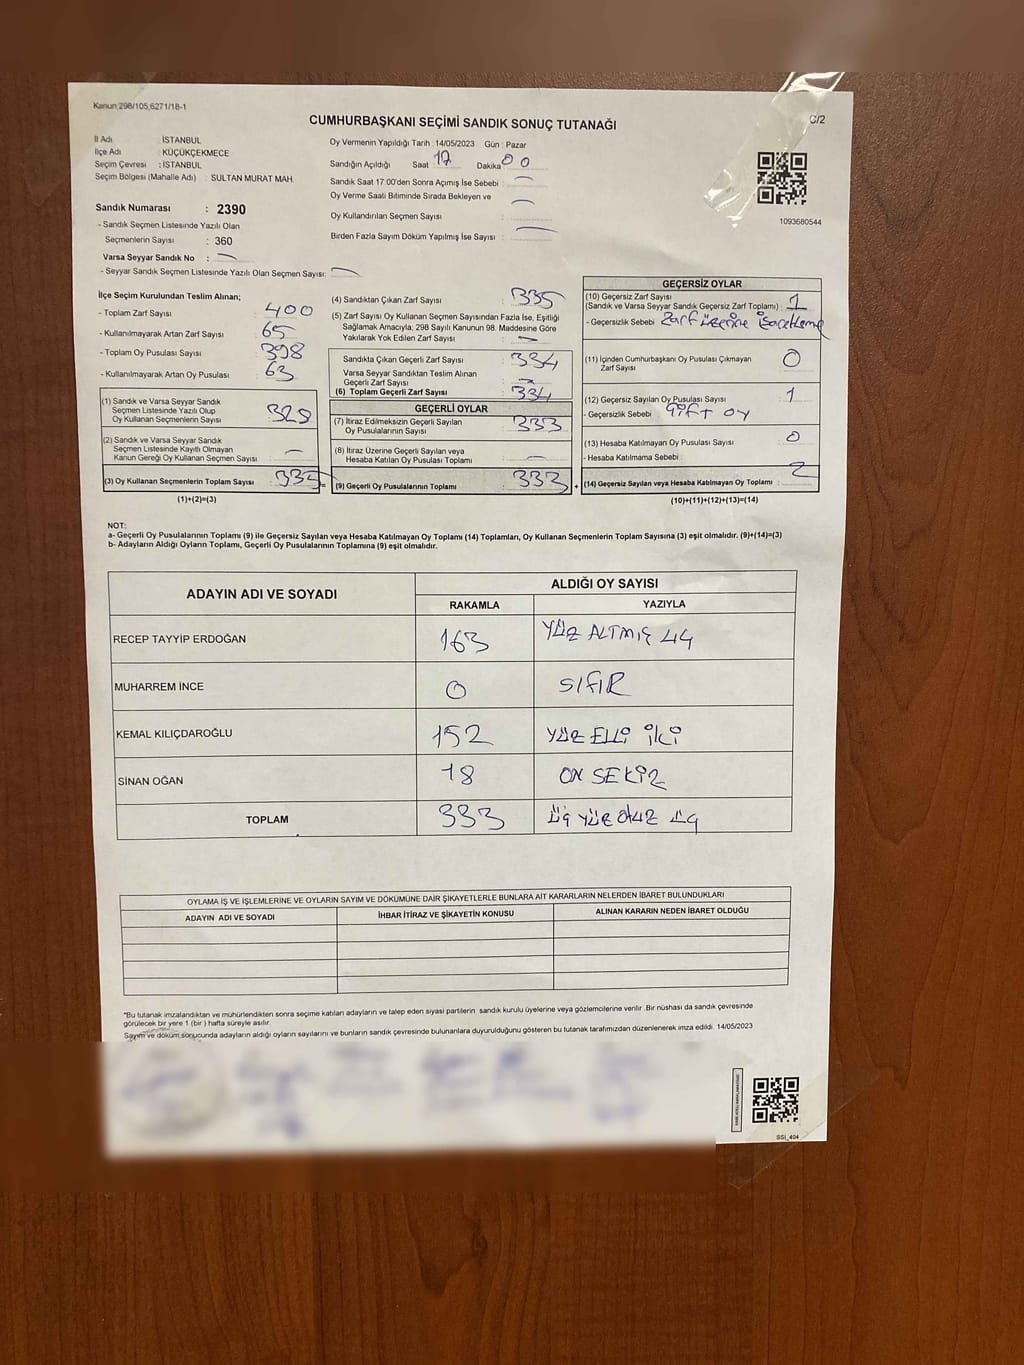 Kanun 298/105,6271/18-1
CUMHURBAŞKANI SEÇİMİ SANDIK SONUÇ TUTANAĞI
C/2
İl Adı : İSTANBUL
İlçe Adı : KÜÇÜKÇEKMECE
Seçim Çevresi : İSTANBUL
Seçim Bölgesi (Mahalle Adı) : SULTAN MURAT MAH.
Sandık Numarası : 2390
- Sandık Seçmen Listesinde Yazılı Olan
Seçmenlerin Sayısı : 360
Varsa Seyyar Sandık No :
- Seyyar Sandık Seçmen Listesinde Yazılı Olan Seçmen Sayısı:
Oy Vermenin Yapıldığı Tarih : 14/05/2023 Gün : Pazar
Sandığın Açıldığı Saat 17 Dakika 00
Sandık Saat 17:00'den Sonra Açımış İse Sebebi :
Oy Verme Saati Bitiminde Sırada Bekleyen ve
Oy Kullandırılan Seçmen Sayısı :
Birden Fazla Sayım Döküm Yapılmış İse Sayısı :
1093680544
İlçe Seçim Kurulundan Teslim Alınan;
- Toplam Zarf Sayısı : 400
- Kullanılmayarak Artan Zarf Sayısı : 65
- Toplam Oy Pusulası Sayısı : 398
- Kullanılmayarak Artan Oy Pusulası : 63
(1) Sandık ve Varsa Seyyar Sandık
Seçmen Listesinde Yazılı Olup
Oy Kullanan Seçmenlerin Sayısı :
(2) Sandık ve Varsa Seyyar Sandık
Seçmen Listesinde Kayıtlı Olmayan
Kanun Gereği Oy Kullanan Seçmen Sayısı :
(3) Oy Kullanan Seçmenlerin Toplam Sayısı : 335 =
(1)+(2)=(3)
(4) Sandıktan Çıkan Zarf Sayısı : 335
(5) Zarf Sayısı Oy Kullanan Seçmen Sayısından Fazla İse, Eşitliği
Sağlamak Amacıyla; 298 Sayılı Kanunun 98. Maddesine Göre
Yakılarak Yok Edilen Zarf Sayısı :
Sandıkta Çıkan Geçerli Zarf Sayısı : 334
Varsa Seyyar Sandıktan Teslim Alınan
Geçerli Zarf Sayısı :
(6) Toplam Geçerli Zarf Sayısı : 334
GEÇERLİ OYLAR
(7) İtiraz Edilmeksizin Geçerli Sayılan
Oy Pusulalarının Sayısı : 333
(8) İtiraz Üzerine Geçerli Sayılan veya
Hesaba Katılan Oy Pusulası Toplamı :
(9) Geçerli Oy Pusulalarının Toplamı : 333 +
GEÇERSİZ OYLAR
(10) Geçersiz Zarf Sayısı
(Sandık ve Varsa Seyyar Sandık Geçersiz Zarf Toplamı) : 1
- Geçersizlik Sebebi : Zarf üzerine işaretleme
(11) İçinden Cumhurbaşkanı Oy Pusulası Çıkmayan
Zarf Sayısı : 0
(12) Geçersiz Sayılan Oy Pusulası Sayısı : 1
- Geçersizlik Sebebi : ÇİFT OY
(13) Hesaba Katılmayan Oy Pusulası Sayısı : 0
- Hesaba Katılmama Sebebi :
(14) Geçersiz Sayılan veya Hesaba Katılmayan Oy Toplamı : 2
(10)+(11)+(12)+(13)=(14)
NOT:
a- Geçerli Oy Pusulalarının Toplamı (9) ile Geçersiz Sayılan veya Hesaba Katılmayan Oy Toplamı (14) Toplamları, Oy Kullanan Seçmenlerin Toplam Sayısına (3) eşit olmalıdır. (9)+(14)=(3)
b- Adayların Aldığı Oyların Toplamı, Geçerli Oy Pusulalarının Toplamına (9) eşit olmalıdır.
ADAYIN ADI VE SOYADI
ALDIĞI OY SAYISI
RAKAMLA YAZIYLA
RECEP TAYYİP ERDOĞAN 163 YÜZ ALTMIŞ ÜÇ
MUHARREM İNCE 0 SIFIR
KEMAL KILIÇDAROĞLU 152 YÜZ ELLİ İKİ
SİNAN OĞAN 18 ON SEKİZ
TOPLAM 333 ÜÇ YÜZ OTUZ ÜÇ
OYLAMA İŞ VE İŞLEMLERİNE VE OYLARIN SAYIM VE DÖKÜMÜNE DAİR ŞİKAYETLERLE BUNLARA AİT KARARLARIN NELERDEN İBARET BULUNDUKLARI
ADAYIN ADI VE SOYADI İHBAR İTİRAZ VE ŞİKAYETİN KONUSU ALINAN KARARIN NEDEN İBARET OLDUĞU
*Bu tutanak imzalandıktan ve mühürlendikten sonra seçime katılan adayların ve talep eden siyasi partilerin sandık kurulu üyelerine veya gözlemcilerine verilir. Bir nüshası da sandık çevresinde
görülecek bir yere 1 (bir ) hafta süreyle asılır.
Sayım ve döküm sonucunda adayların aldığı oyların sayılarını ve bunların sandık çevresinde bulunanlara duyurulduğunu gösteren bu tutanak tarafımızdan düzenlenerek imza edildi. 14/05/2023
SSI_404